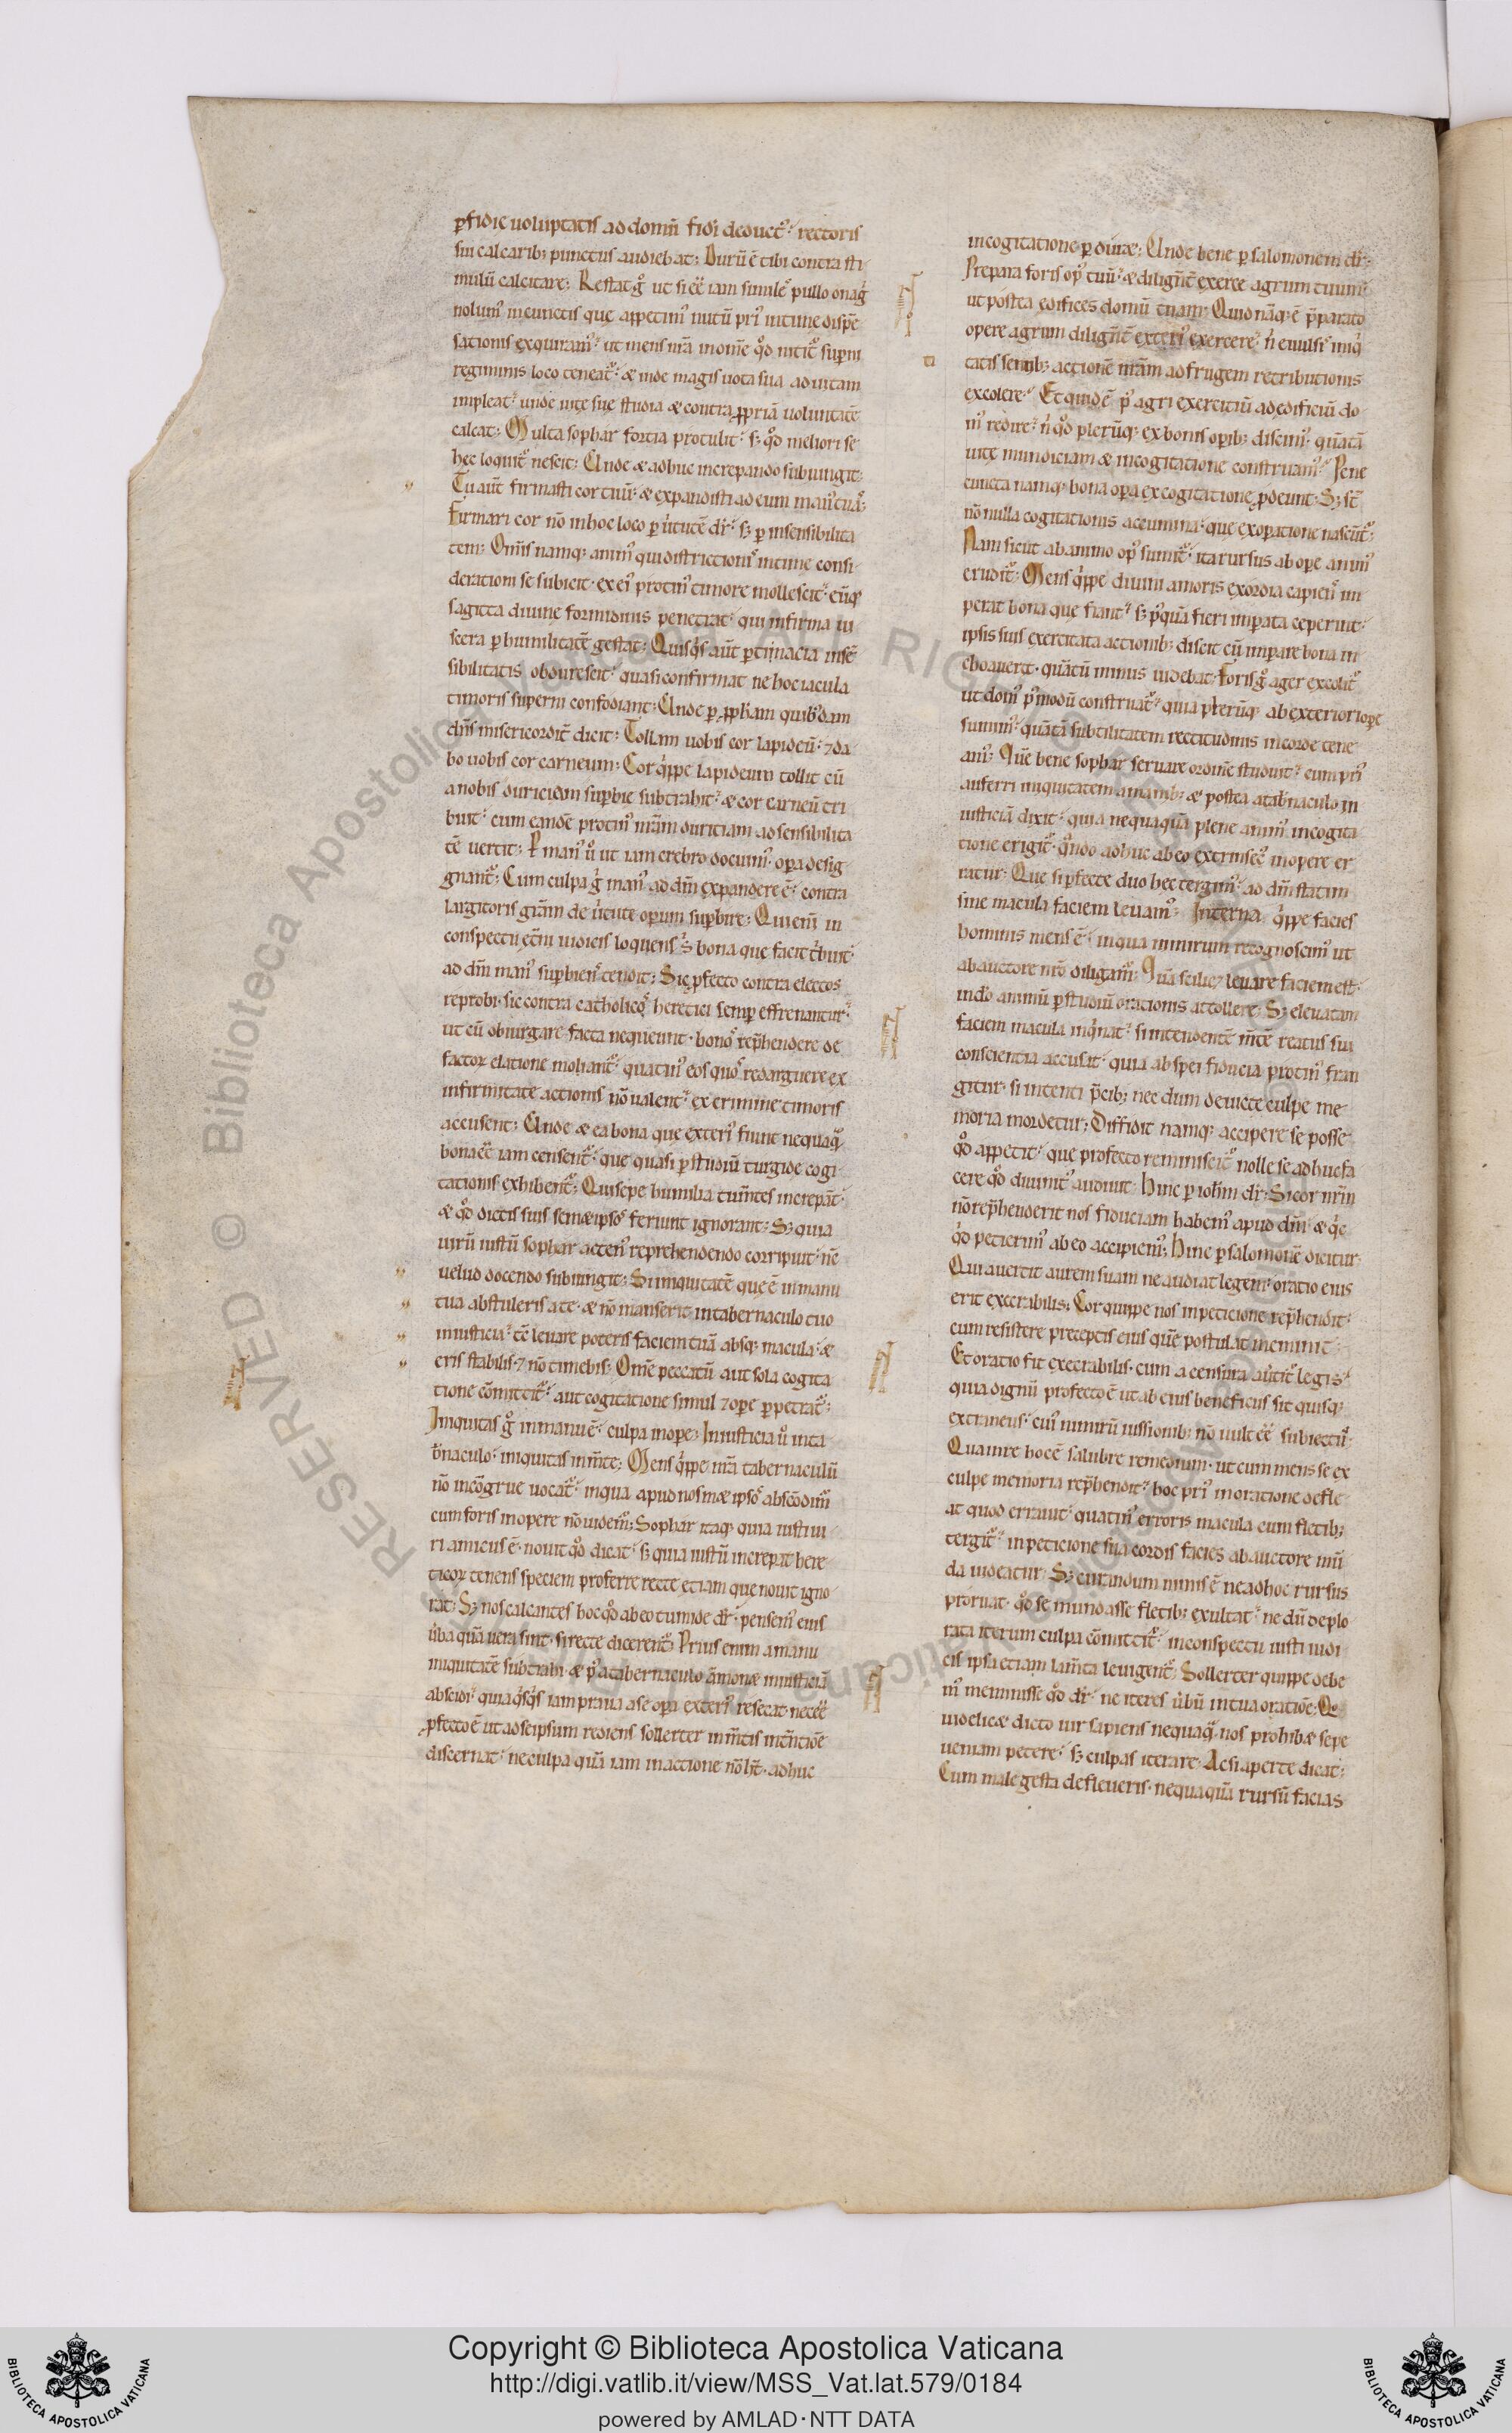 ꝑfidie uoluptatis ad domū fidi deduct᷒ rectoris
sui calcarib; punctus audiebat; Durū ē tibi contra sti
mulū calcitare; Restat g̊ ut si ēē iam simile᷒ pullo onag̍
nolum᷒ in cunctis que appetim᷒ nutū pri᷒ intime dispē
sationis exquiram᷒ ut mens nr̄a in om̄e qd̊ nitit᷒ supni
regiminis loco teneat᷒ & inde magis uota sua ad uitam
impleat᷒ unde uite sue studia & contra ꝓpriā uoluntatē
calcat; Multa sophar fortia protulit᷒ s; qd̊ meliori se
hec loquit᷒ nescit; Unde & adhuc increpando subiungit;
Tu aut̄ firmasti cor tuū & expandisti ad eum man᷒ tua᷒;
Firmari cor nō in hoc loco ꝑ uirtutē dr̄ s; ꝑ insensibilita
tem; Om̄is namq; anim᷒ qui districtioni᷒ intime consi
derationi se subicit· ex ei᷒ protin᷒ timore mollescit᷒ eūq;
sagitta diuine formidinis penetrat᷒ qui infirma ui
scera ꝑ humilitatē gestat; Quisq̍s aut̄ ꝑtinacia insē
sibilitatis obdurescit᷒ quasi confirmat ne hoc iacula
timoris superni confodiant; Unde ꝑ ꝓpham quib᷒dam
dn̄s misericordit̄ dicit; Tollam uobis cor lapideū· ⁊ da
bo uobis cor carneum; Cor q̍ppe lapideum tollit cū
a nobis duriciam supbie subtrahit᷒ & cor carneū tri
buit᷒ cum eandē protin᷒ nr̄am duritiam ad sensibilita
tē uertit; P man᷒ u̍ ut iam crebro docuim᷒ opa desig
gnant᷒; Cum culpa g̊ man᷒ ad dm̄ expandere ē᷒ contra
largitoris gr̄am de u̍tute operum supbire; Qui eni᷒ in
conspectu etn̄i iudicis loquens s̍ bona que facit t̍buit
ad dm̄ man᷒ supbien᷒ tendit; Sic ꝓfecto contra electos
reprobi· sic contra catholico᷒ heretici semp effrenantur᷒
ut cū obiurgare facta nequeunt· bono᷒ rep̄hendere be
factoꝝ elatione moliant᷒ quatin᷒ eos quo᷒ redarguere ex
infirmitate actionis nō ualent᷒ ex crimine timoris
accusent; Unde & ea bona que exteri᷒ fiunt nequaq̄
bona ēē iam censent᷒ que quasi ꝑ studiū turgide cogi
tationis exhibent᷒; Qui sepe humilia tum̄tes increpāt
& qd̊ dictis suis semetipso᷒ feriunt ignorant; S; quia
uirū iustū sophar acten᷒ reprehendendo corripuit· nc̄
uelud docendo subiungit; Si iniquitatē que ē in manu
tua abstuleris a te· & nō manserit in tabernaculo tuo
iniusticia᷒ tc̄ leuare poteris faciem tuā absq; macula· &
eris stabilis· ⁊ nō timebis; Om̄e peccatū aut sola cogita
tione cōmittit᷒ aut cogitatione simul ⁊ ope ꝑpetrat᷒;
Iniquitas g̊ in manu ē᷒ culpa in ope; Iniusticia u̍ in ta
b̄naculo᷒ iniquitas in m̄te; Mens q̍ppe nr̄a tabernaculū
nō incōgrue uocat᷒ in qua apud nosmet ipso᷒ abscōdim᷒
cum foris in opere nō uidem᷒; Sophar itaq; quia iusti ui
ri amicus ē· nouit qd̊ dicat᷒ s; quia iustū increpat here
ticoꝝ tenens speciem proferre recte etiam que nouit igno
rat; S; nos calcantes hoc qd̊ ab eo tumide dr̄· pensem᷒ eius
u̍ba quā uera sint· si recte dicerent᷒; Prius enim a manu
iniquitatē subtrahi· & p᷒ a tabernaculo āmonet iniusticiā
abscidi᷒ quia q̍sq̍s iam praua a se opa exteri᷒ resecat necēē
ꝓfecto ē ut ad se ipsum rediens sollerter in m̄tis int̄ntiōe
discernat᷒ ne culpa quā iam in actione nō ht̄· adhuc
in cogitatione ꝑduret; Unde bene ꝑ salomonem dr̄;
Prepara foris op᷒ tuū & diligēt̄ exerce agrum tuum᷒
ut postea edifices domū tuam; Quid nāq; ē p̄parato
opere agrum diligēt̄ exteri᷒ exercere᷒ n̍ euulsi᷒ iniq̍
tatis sentib; actionē nr̄am ad frugem retributionis
excolere᷒ Et quid ē p᷒ agri exercitiū ad edificiū do
m᷒ redire᷒ n̍ qd̊ plerūq; ex bonis opib; discim᷒ quātā
uite mundiciam & in cogitatione construam᷒ Pene
cuncta namq; bona opa ex cogitatione ꝓdeunt; S; st̄
nō nulla cogitationis acumina᷒ que ex opatione nascūt᷒;
Nam sicut ab animo op᷒ sumit᷒· ita rursus ab ope anim᷒
erudit᷒; Mens q̍ppe diuini amoris exordia capien᷒ im
perat bona que fiant᷒ s; p᷒quā fieri imperata ceperint·
ipsis suis exercitata actionib; discit cū imperare bona in
choaueret· quātū minus uidebat; Foris g̊ ager excolit᷒
ut dom᷒ p᷒modū construat᷒ quia plerūq; ab exteriori ope
sumim᷒ quātā subtilitatem rectitudinis in corde tene
am᷒; Quē bene sophar seruare ordinē studuit᷒ cum pri᷒
auferri iniquitatem a manib; & postea a tab̄naculo in
iusticiā dixit᷒ quia nequaquā plene anim᷒ in cogita
tione erigit᷒ qn̄do adhuc ab eo extrinsec᷒ in opere er
ratur; Que si ꝑfecte duo hec tergim᷒ ad dm̄ statim
sine macula faciem leuam᷒; Interna q̍ppe facies
hominis mens ē᷒ in qua nimirum recognoscim᷒ ut
ab auctore nr̄o diligam᷒; Quā scilic; leuare faciem est·
in dō animū ꝑ studiū orationis attollere; S; eleuatam
faciem macula inq̍nat᷒ si intendentē m̄tē reatus sui
conscientia accusat᷒ quia ab spei fiducia protin᷒ fran
gitur· si intenti p̄cib; nec dum deuicte culpe me
moria mordetur; Diffidit namq; accipere se posse
qd̊ appetit᷒ que profecto reminiscit᷒ nolle se adhuc fa
cere qd̊ diuinit᷒ audiuit; Hinc ꝑ ioh̄m dr̄; Si cor nr̄m
nō rep̄henderit nos fiduciam habem᷒ apud dm̄ & q̍c
qd̊ petierim᷒ ab eo accipiem᷒; Hinc ꝑ salomonē dicitur;
Qui auertit aurem suam ne audiat legem᷒ oratio eius
erit execrabilis; Cor quippe nos in peticione rep̄hendit·
cum resistere preceptis eius quē postulat meminit·
Et oratio fit execrabilis· cum a censura au̍tit᷒ legis᷒
quia dignū profecto ē ut ab eius beneficiis sit quisq;
extraneus᷒ cui᷒ nimirū iussionib; nō uult ēē subiectu᷒;
Qua in re hoc ē salubre remedium· ut cum mens se ex
culpe memoria rep̄hendit᷒ hoc pri᷒ in oratione defle
at quod errauit᷒ quatin᷒ erroris macula cum fletib;
tergit᷒ in peticione sua cordis facies ab auctore mū
da uideatur; S; curandum nimis ē ne ad hoc rursus
proruat· qd̊ se mundasse fletib; exultat᷒ ne dū deplo
rata iterum culpa cōmittit᷒ in conspectu iusti iudi
cis ipsa etiam lam̄ta leuigent᷒; Sollerter quippe debe
m᷒ meminisse qd̊ dr̄᷒ ne iteres u̍bū in tua oratiōe; Qo
uidelicet dicto uir sapiens nequaq̄ nos prohibet sepe
ueniam petere᷒ s; culpas iterare· Ac si aperte dicat;
Cum male gesta defleueris· nequaquā rursū facias
Copyright © Biblioteca Apostolica Vaticana
http://digi.vatlib.it/view/MSS_Vat.lat.579/0184
powered by AMLAD·NTT DATA
BIBLIOTECA APOSTOLICA VATICANA
BIBLIOTECA APOSTOLICA VATICANA